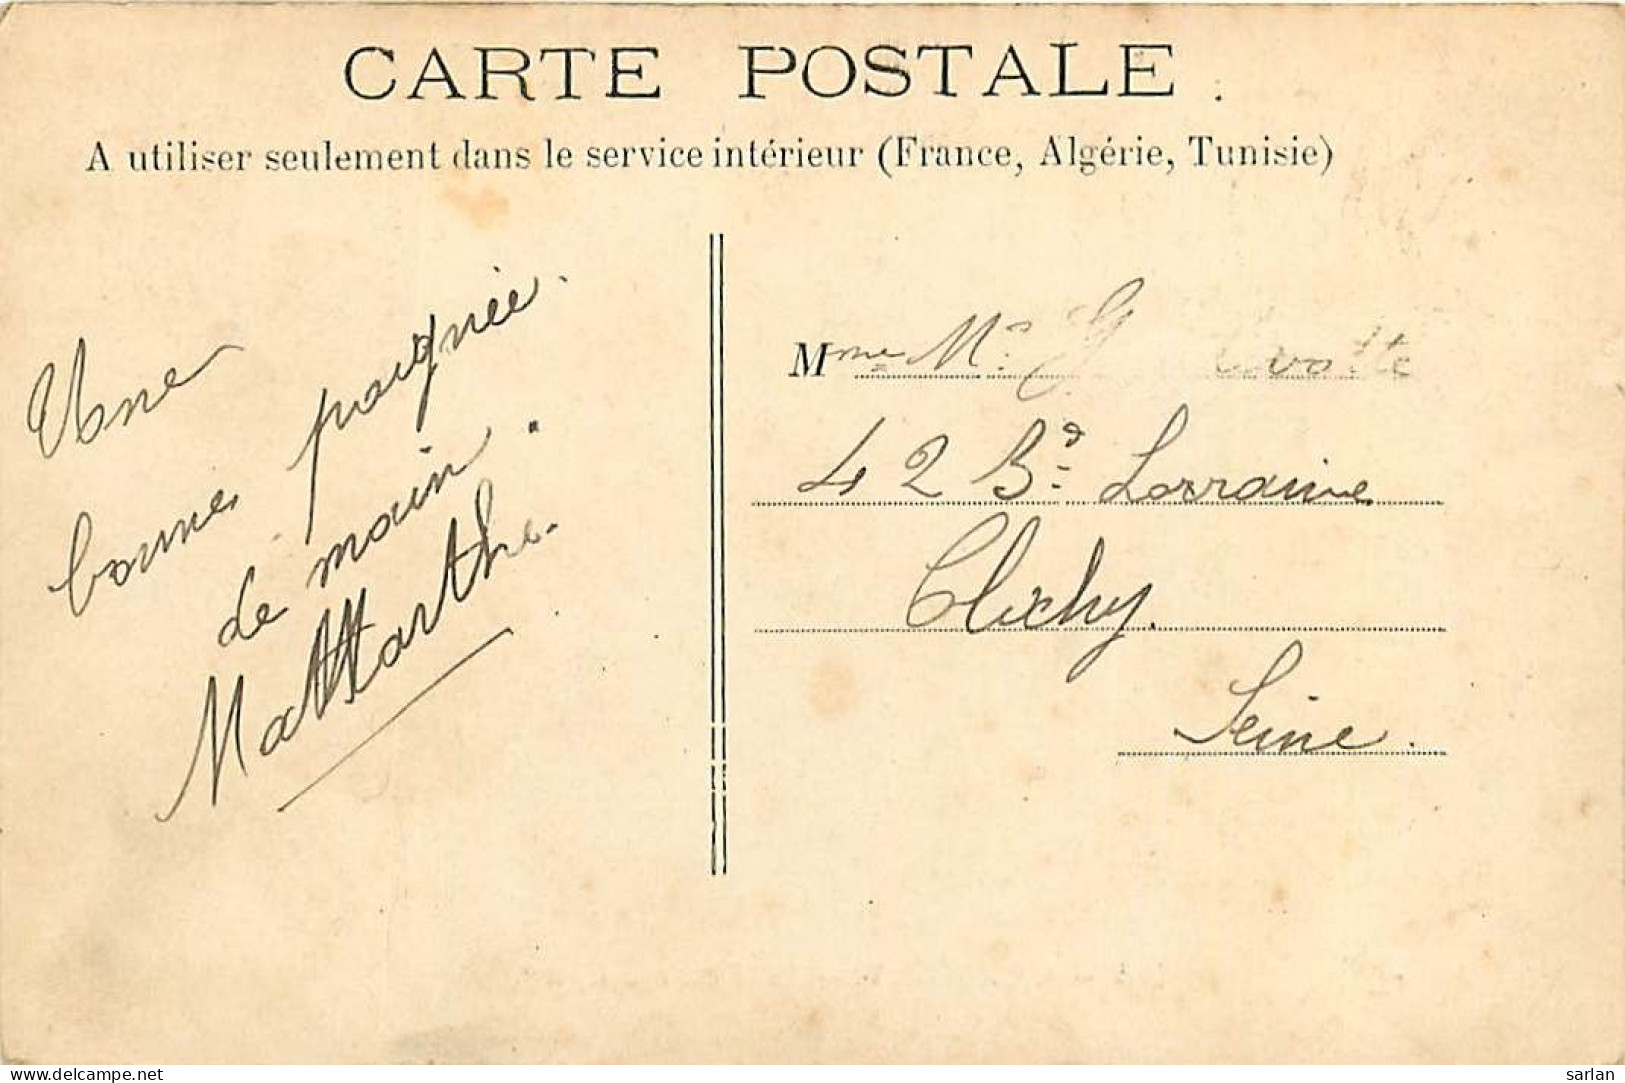 CARTE POSTALE
A utiliser seulement dans le service intérieur (France, Algérie, Tunisie)
Une
bonne poignée
de main.
Marthe.
Mme Mr G
42 Bd Lorraine
Clichy.
Seine.
www.delcampe.net
sarlan